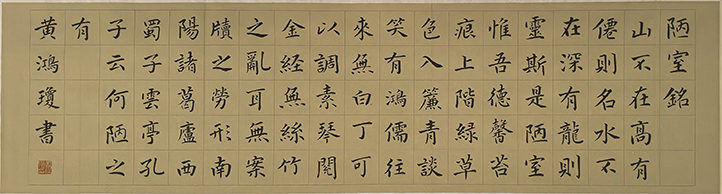 陋室銘
山不在高有
僊則名水不
在深有龍則
靈斯是陋室
惟吾德馨苔
痕上階緑草
色入簾青談
笑有鴻儒往
來無白丁可
以調素琴閱
金經無絲竹
之亂耳無案
牘之勞形南
陽諸葛廬西
蜀子雲亭孔
子云何陋之
有
黄鴻瓊書